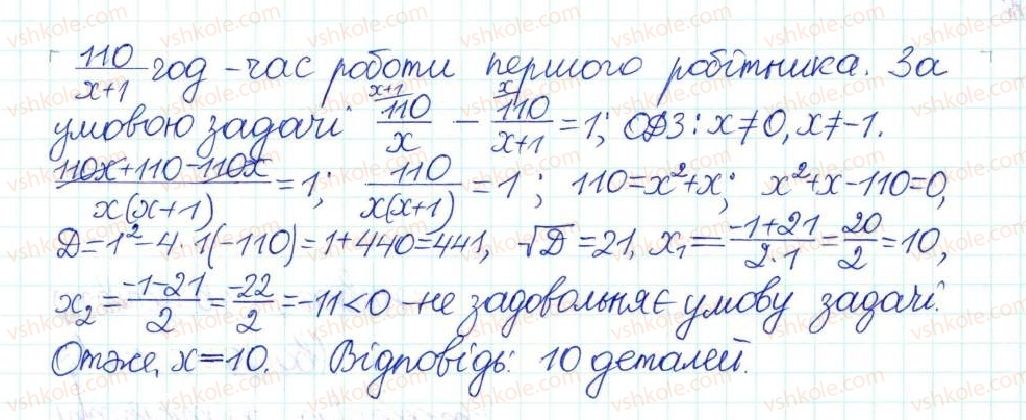 110/(x+1) год - час роботи першого робітника. За
умовою задачі 110/x (x+1) - 110/(x+1) (x) = 1; ОДЗ: x≠0, x≠-1.
(110x+110-110x)/(x(x+1)) = 1; 110/(x(x+1)) = 1; 110=x²+x; x²+x-110=0,
D=1²-4·1(-110)=1+440=441, √D=21, x₁=(-1+21)/(2·1)=20/2=10,
x₂=(-1-21)/2=-22/2=-11<0 - не задовольняє умову задачі.
Отже, x=10. Відповідь: 10 деталей.